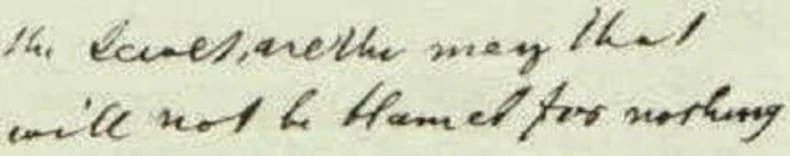 the are the men that
will not be blamed for nothing